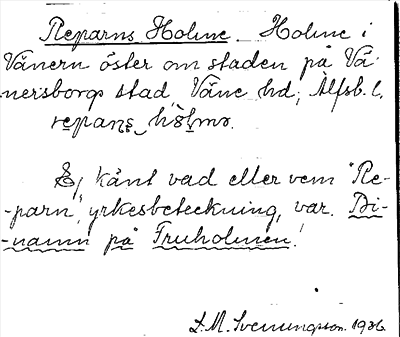 Reparns Holme. Holme i
Vänern öster om staden på Vä-
nersborgs stad Väne hd, Älfsb. l.
repaṇs hòlmə.
Ej känt vad eller vem "Re-
-parn", yrkesbeteckning, var. Bi-
-namn på Fruholmen!
D. M. Svenningson. 1926.